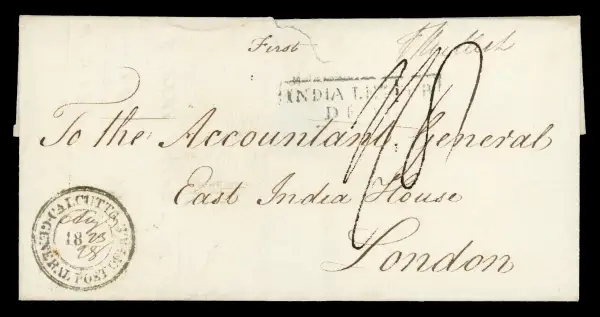 First
INDIA LETTER
To the Accountant General
East India House
London
CALCUTTA
GENERAL POST OFFICE
Aug
18 23
28